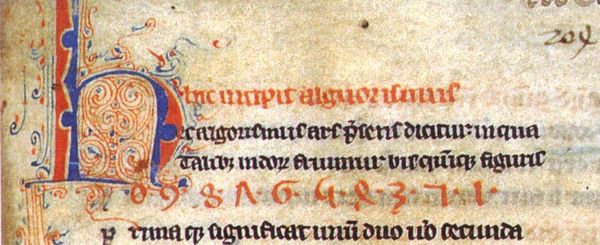 hic incipit algorismus
Hec algorismus ars p̄sens dicitur in qua
Talibꝫ indoꝝ fruimur bis quinqꝫ figuris
0 · 9 · 8 · 7 · 6 · 5 · 4 · 3 · 2 · 1 ·
Prima qꝫ significat unū duo u̅o secunda